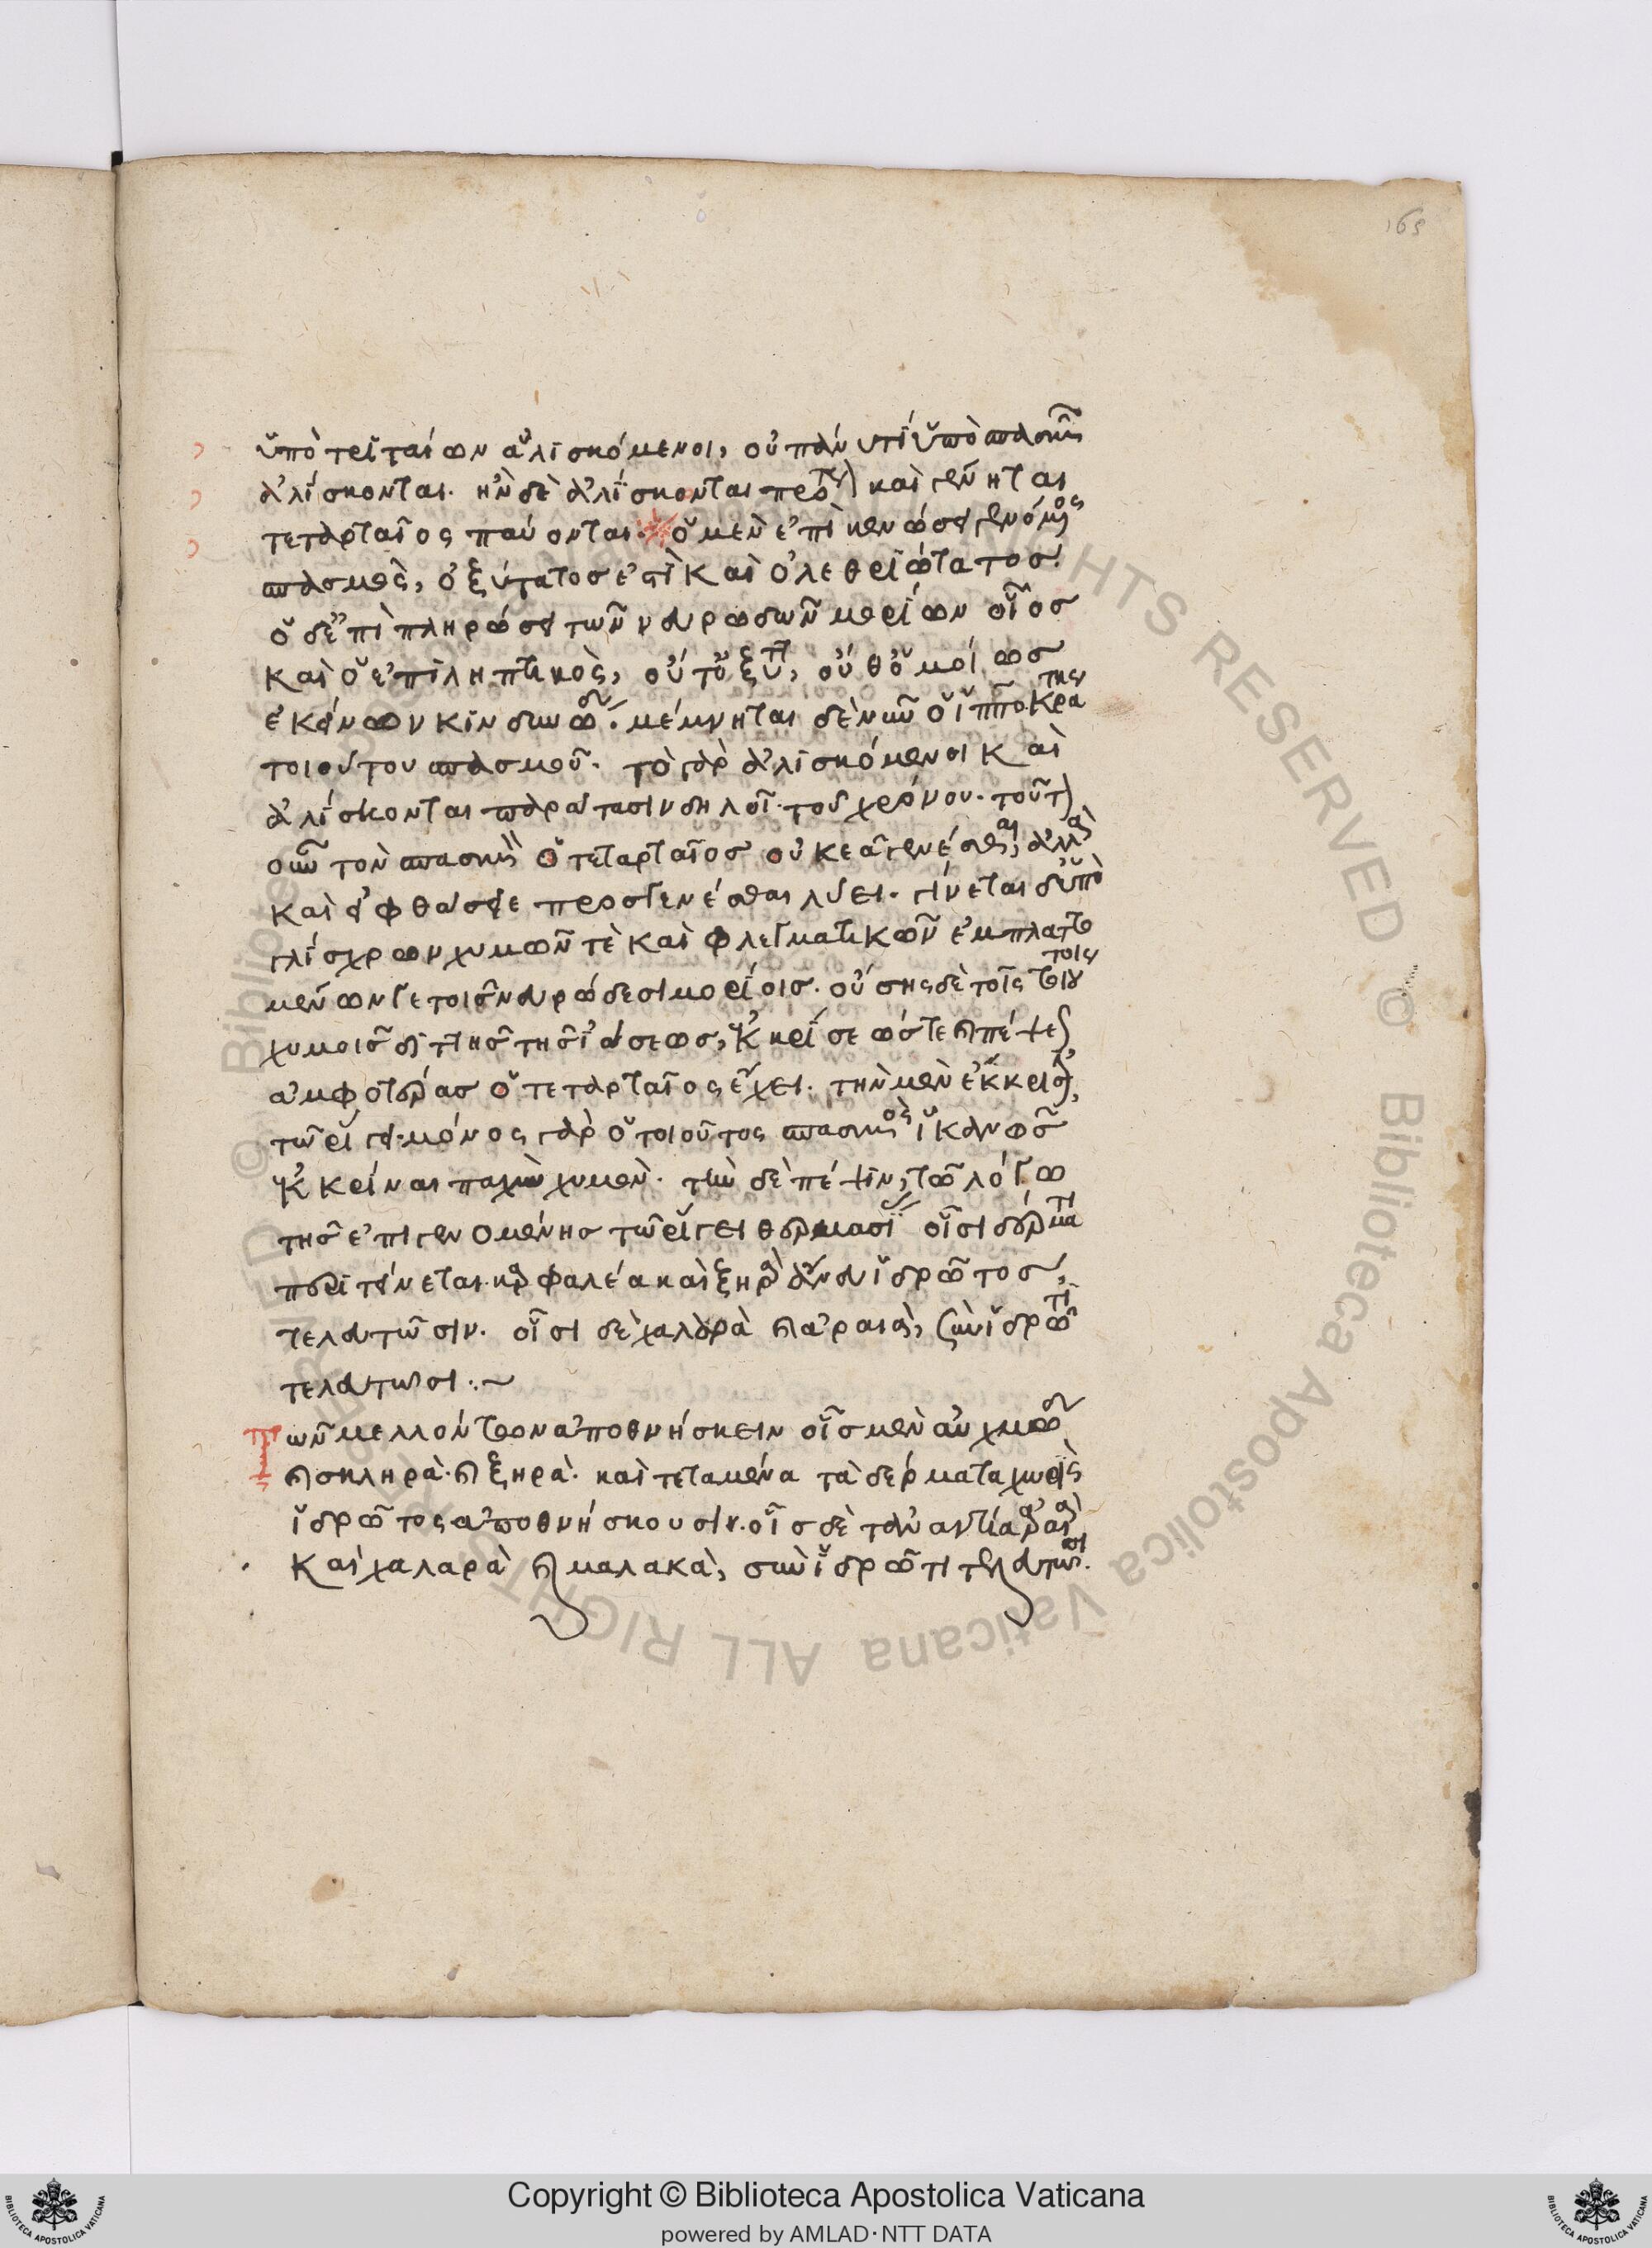 169
ὑπὸ τεταρταίων ἁλισκόμενοι, οὐ πάνυ τι ὑπὸ σπασμοῦ
ἁλίσκονται. ἢν δὲ ἁλίσκονται πρότερον καὶ γένηται
τεταρταῖος παύονται. ὁ μὲν ἐπὶ κενώσει γενόμενος
σπασμὸς, ὀξύτατος ἐστὶ καὶ ὀλεθριώτατος.
ὁ δ' ἐπὶ πληρώσει τῶν νευρωδῶν μορίων οἷος
καὶ ὁ ἐπιληπτικὸς, οὔτ' ὀξὺ, οὔθ' ὁμοίως
ἐκείνων κινδυνώδης. μέμνηται δὲ νῦν ὁ ἱπποκράτης
τοιούτου σπασμοῦ. τὸ γὰρ ἁλισκόμενοι καὶ
ἁλίσκονται παράτασιν δηλοῖ τοῦ χρόνου. τοῦτον
οὖν τὸν σπασμὸν ὁ τεταρταῖος οὐκ ἐᾶ γενέσθαι, ἀλλὰ
καὶ εἰ φθάσειε προγενέσθαι λύει. γίνεται δ' ὑπὸ
γλίσχρων χυμῶν τὲ καὶ φλεγματικῶν ἐμπλαττο
μένων γε τοῖς νευρώδεσι μορίοις. οὔσης δὲ τοῖς τοιούτοις
χυμοῖς διττῆς τῆς ἰάσεως, ἐκκρίσεώς τε καὶ πέψεως
ἀμφοτέρας ὁ τεταρταῖος ἔχει. τὴν μὲν ἔκκρισιν,
τῶ ῥίγει. μόνος γὰρ ὁ τοιοῦτος σπασμὸς ἱκανῶς
ἐκκρίναι παχὺν χυμὸν. τὴν δὲ πέψιν, τῶ λόγω
τῆς ἐπιγενομένης τῶ ῥίγει θερμασίας οἷσι δέρματι
περιτείνεται καρφαλέα καὶ ξηρὰ ἄνευ ἱδρῶτος,
τελευτῶσιν. οἷσι δὲ χαλαρὰ καὶ ἀραιὰ, σὺν ἱδρῶτι
τελευτῶσι :~
Τῶν μελλόντων ἀποθνήσκειν οἷς μὲν αὐχμώδη
καὶ σκληρὰ. καὶ ξηρὰ. καὶ τεταμένα τὰ δέρματα χωρὶς
ἱδρῶτος ἀποθνήσκουσιν. οἷς δὲ τἀναντία ἀραιὰ
καὶ χαλαρὰ καὶ μαλακὰ, σὺν ἱδρῶτι τελευτῶσι.
Copyright © Biblioteca Apostolica Vaticana
powered by AMLAD·NTT DATA